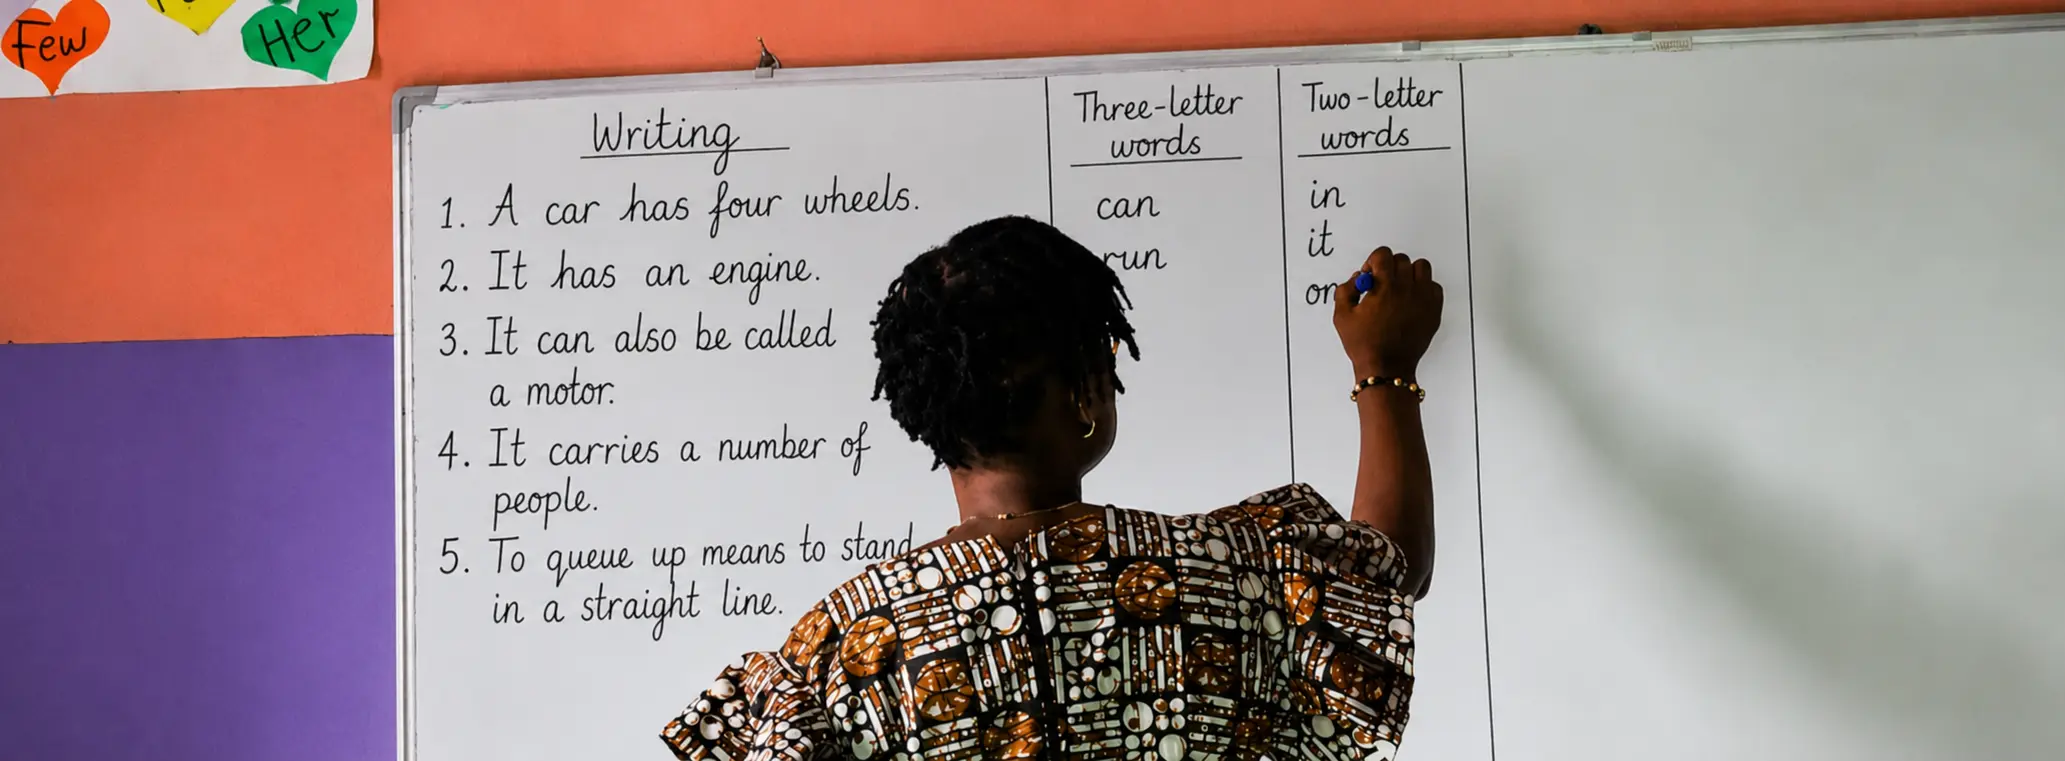 Few
Her
Writing
1. A car has four wheels.
2. It has an engine.
3. It can also be called
a motor.
4. It carries a number of
people.
5. To queue up means to stand
in a straight line.
Three-letter
words
can
run
Two-letter
words
in
it
on